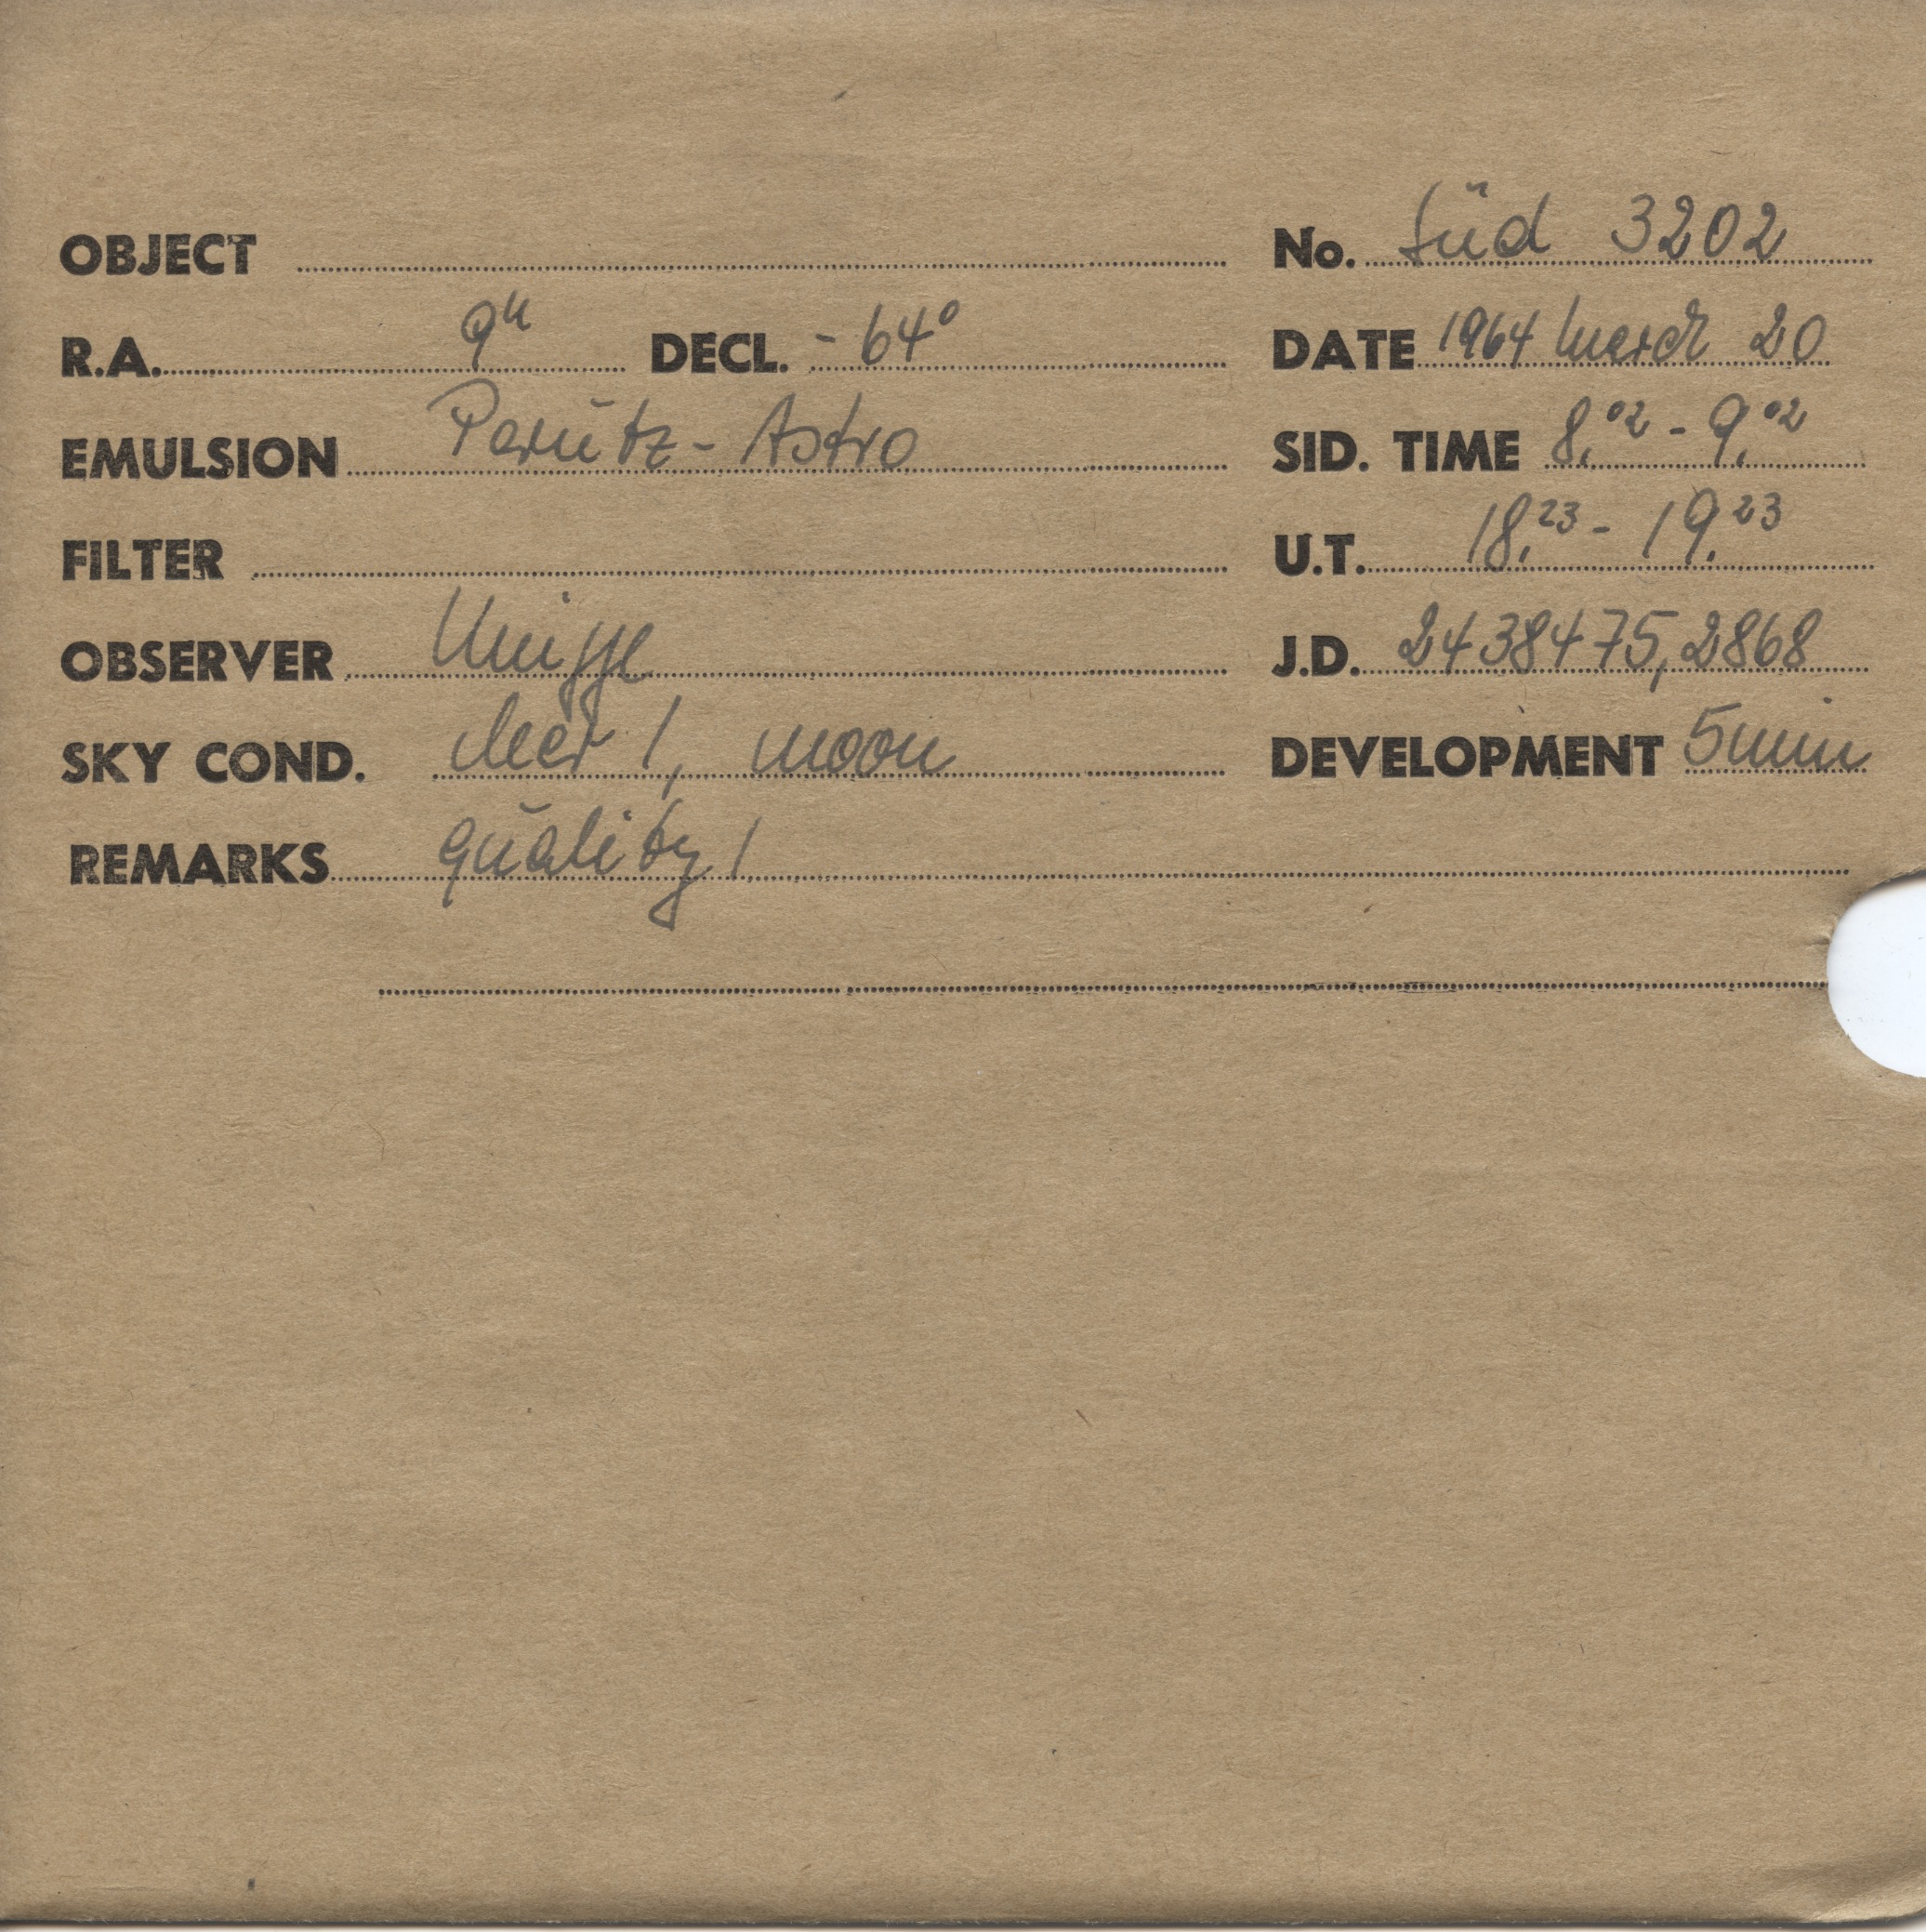 OBJECT No. Süd 3202
R.A. 9h DECL. -64° DATE 1964 March 20
EMULSION Perutz-Astro SID. TIME 8.02 - 9.02
FILTER U.T. 18.23 - 19.23
OBSERVER Knigge J.D. 2438475,2868
SKY COND. clear 1, moon DEVELOPMENT 5min
REMARKS quality 1